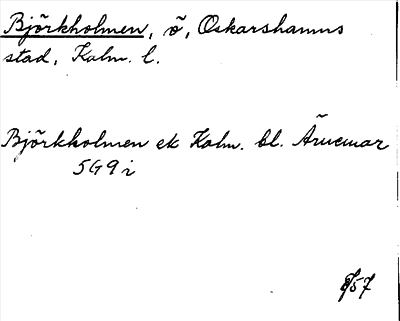 Björkholmen, ö, Oskarshamns
stad, Kalm. l.
Björkholmen ek Kalm. bl. Ävernar
5G9i
57